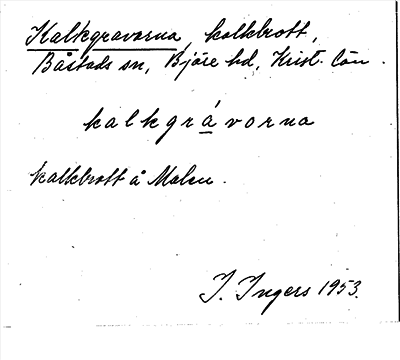 Kalkgravorna, kalkbrott,
Båstads sn, Bjäre hd, Krist. län.
kalkgrávorna
kalkbrott å Malen.
I. Ingers 1953.